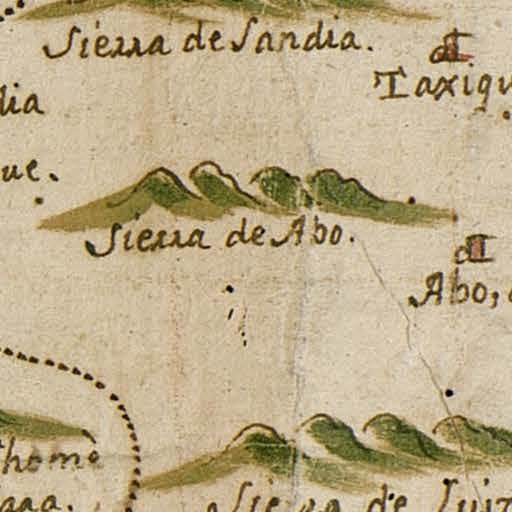 Sierra de Sandia.
Taxiqu
dia
ue.
Sierra de Abo.
Abo,
thome
Sierra de